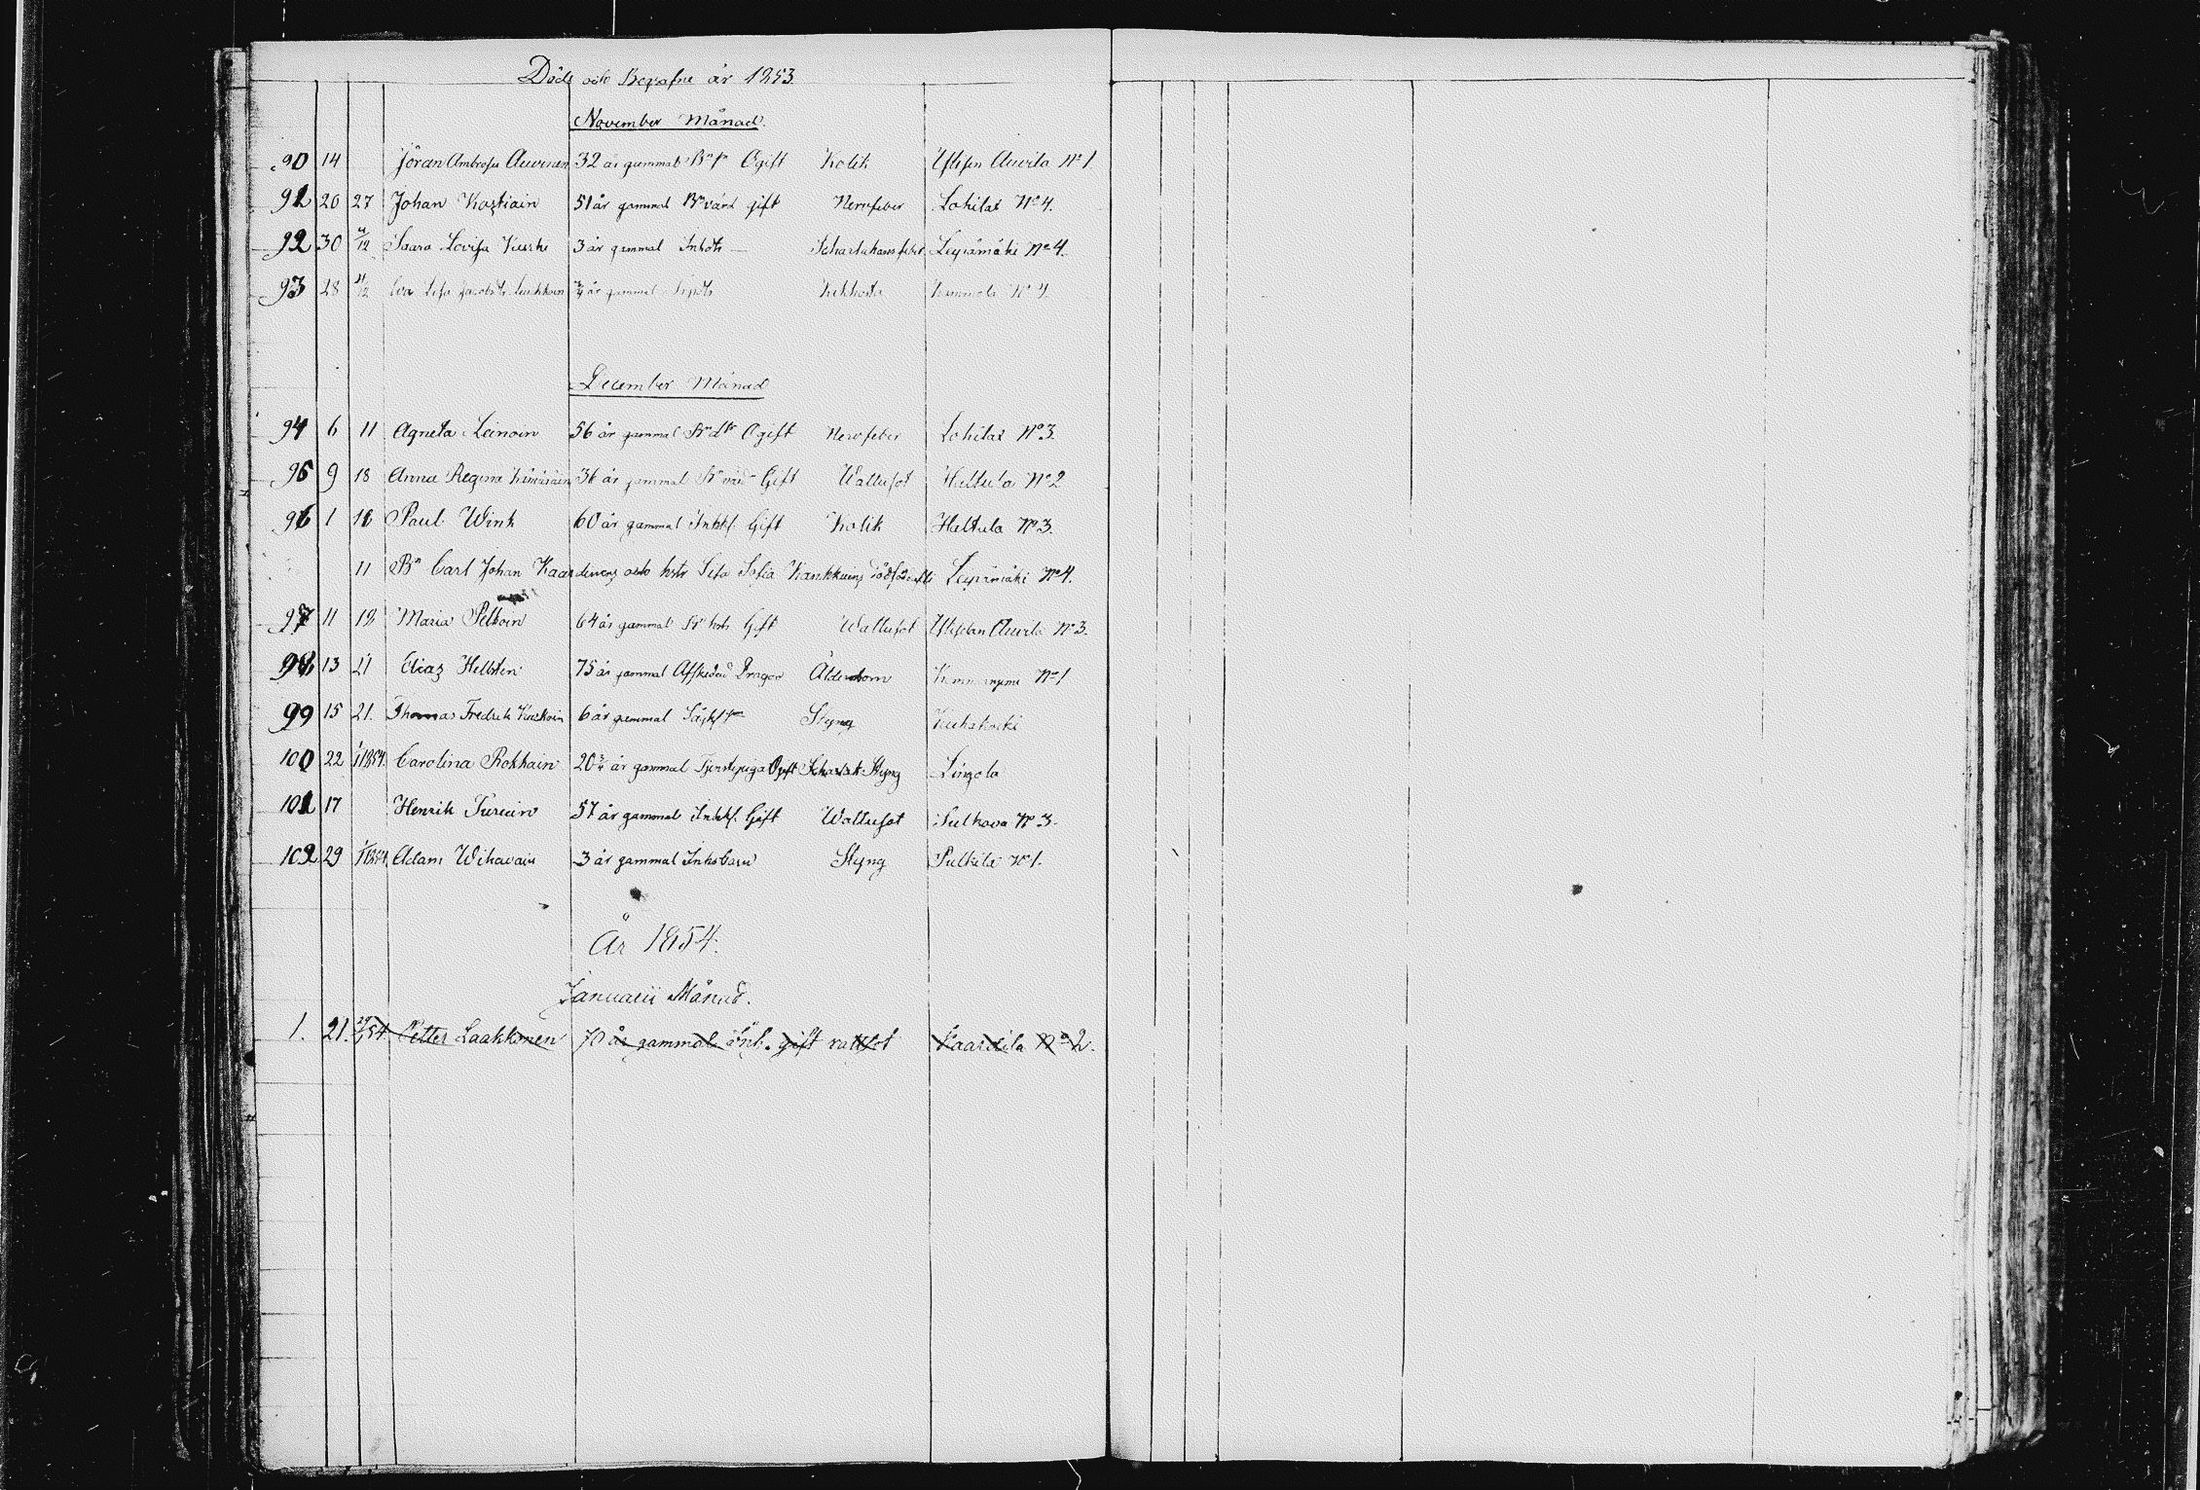 Döde och Begrafne år 1853.
November Månad.
90 14 Jöran Ambrosn Auvinen 32 år gammal Bn Ogift Kolik Auvila No 1
91 26 27 Johan Kostiain 51 år gammal Bn värd gift Nervfeber Lohilax No 4.
92 30 4/12 Saara Lovisa Kurki 3 år gammal Inhdtr Scharlakansfeber Leipämäki No 4.
93 28 11/12 Eva Lisa 3/4 år gammal Kikhosta No
December Månad
94 6 11 Agneta Leinoin 56 år gammal Bn dtr Ogift Nervfeber Lohilax No 3.
95 9 18 Anna Regina 36 år gammal Gift Wattusot Haltula No 2
96 1 18 Paul Wink 60 år gammal Inhkl. Gift Kolik Haltula No 3.
11 Bn Carl Johan Kaardinens och hstr Lisa Sofia Leipämäki No 4.
97 11 18 Maria Peltoin 64 år gammal Bn hstr Gift Wattusot Auvila No 3.
98 13 21 Elias Hellsten 75 år gammal Afskedad Dragon Ålderdom No 1
99 15 21. Thomas Fredrik 6 år gammal Styng
100 22 1/1 1854. Carolina Rokkain 20 3/4 år gammal Tjenstepiga Ogift Scharlak Styng Lingola
101 17 Henrik Turuin 57 år gammal Inhkl. Gift Wattusot Sulkava No 3.
102 29 1/1 1854. Adam Wihavain 3 år gammal Inhsbarn Styng Pulkila No 1.
År 1854.
Januarii Månad.
1. 21. 29/1 54. Petter Laakkonen 70 år gammal inh. gift vattsot Kaartila No 2.